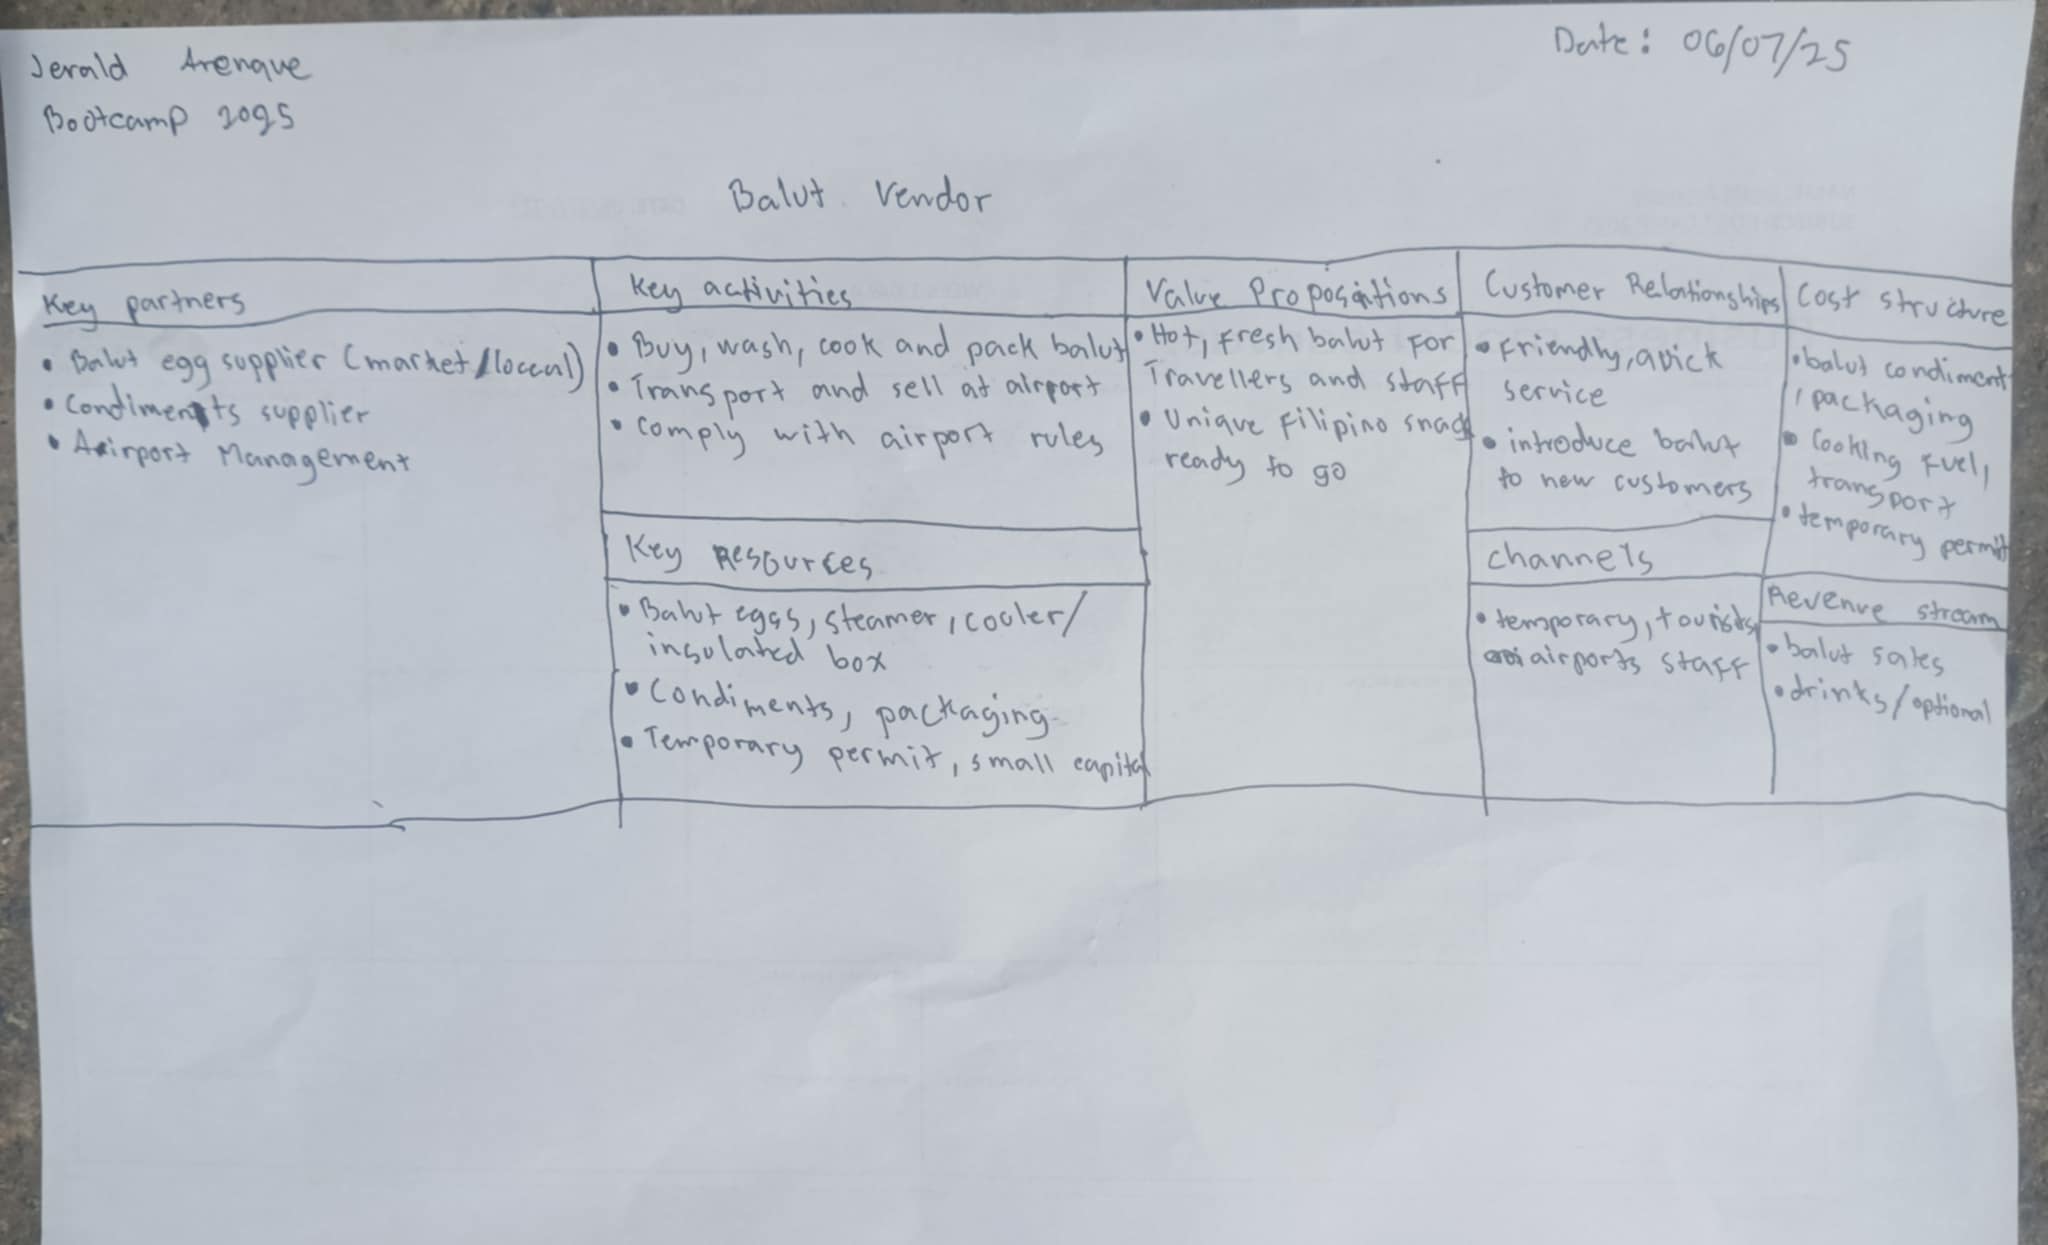 Jerald Arenque
Bootcamp 2025
Date: 06/07/25
Balut Vendor
Key partners
• Balut egg supplier (market/local)
• Condiments supplier
• Airport Management
Key activities
• Buy, wash, cook and pack balut
• Transport and sell at airport
• Comply with airport rules
Key Resources
• Balut eggs, steamer, cooler/
insulated box
• Condiments, packaging
• Temporary permit, small capital
Value Propositions
• Hot, Fresh balut For
Travellers and staff
• Unique Filipino snack
ready to go
Customer Relationships
• Friendly, quick
service
• introduce balut
to new customers
Channels
• temporary, tourists,
airports staff
Cost structure
• balut condiment
, packaging
• Cooking Fuel,
transport
• temporary permit
Revenue stream
• balut sales
• drinks/optional